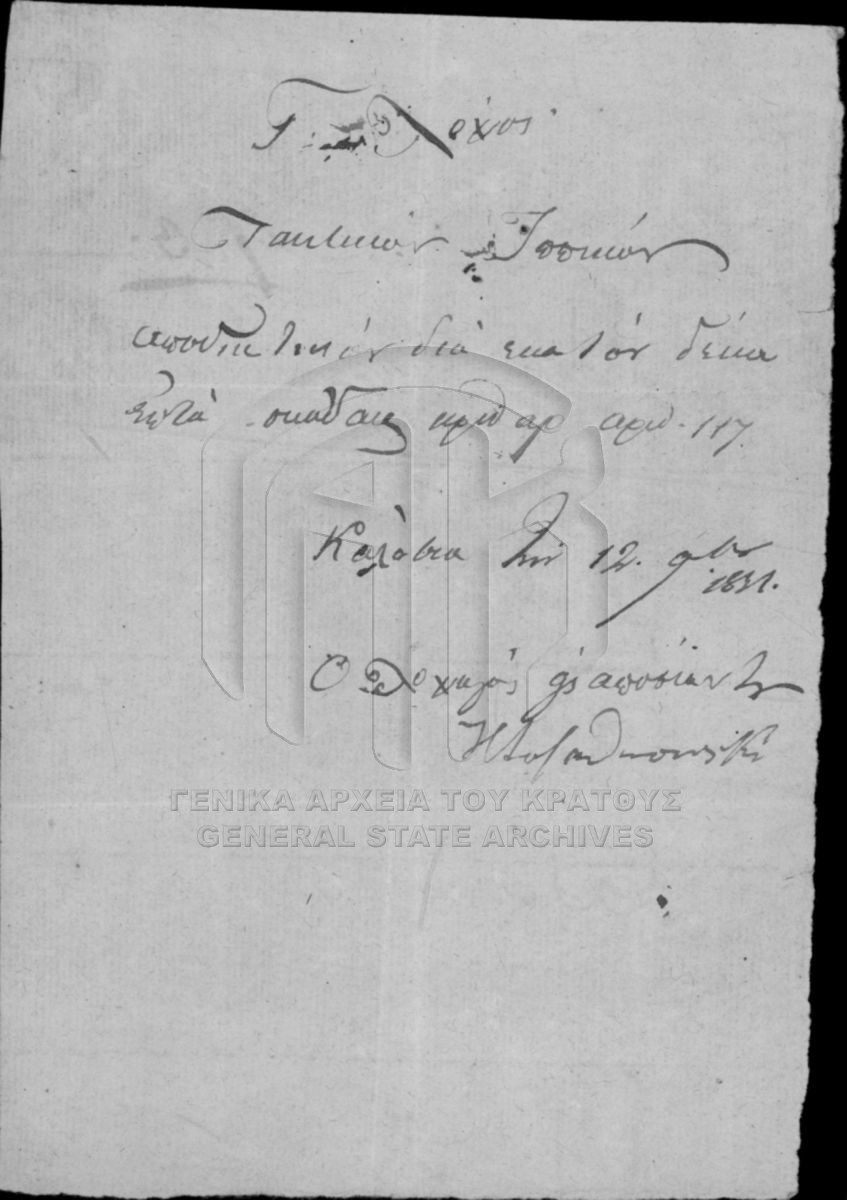 Γ. Λόχος
Τακτικών Ιππικών
αποδικτικόν διά εκατόν δέκα
επτά οκάδαις κριθαρ αριθ. 117
την 12. 9βρ
1831.
Ο Λοχαγός
ΓΕΝΙΚΑ ΑΡΧΕΙΑ ΤΟΥ ΚΡΑΤΟΥΣ
GENERAL STATE ARCHIVES